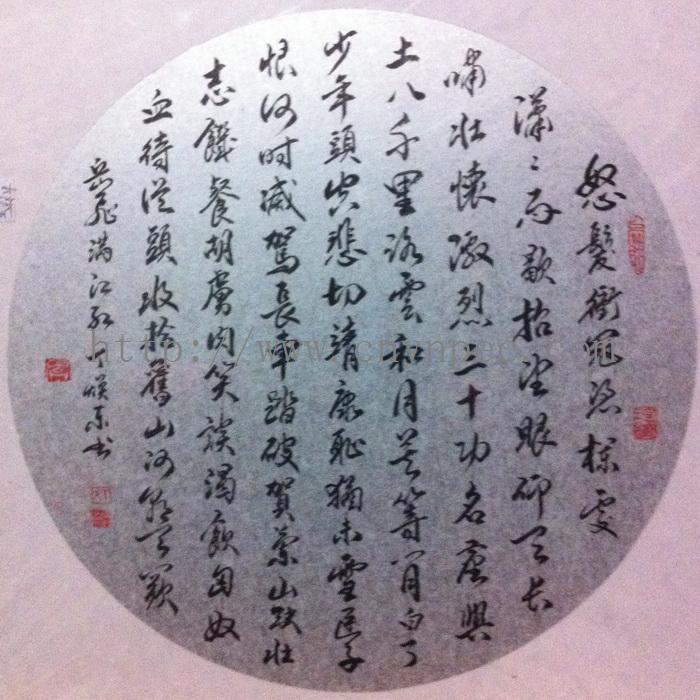 怒髮衝冠憑栏处
瀟〻雨歇抬望眼仰天长
嘯壮懷激烈三十功名塵與
土八千里路雲和月莫等闲白了
少年頭空悲切靖康恥猶未雪臣子
恨何时滅駕長车踏破賀蘭山缺壮
志饑餐胡虜肉笑談渴飲匈奴
血待從頭收拾舊山河朝天闕
岳飛满江红 东书